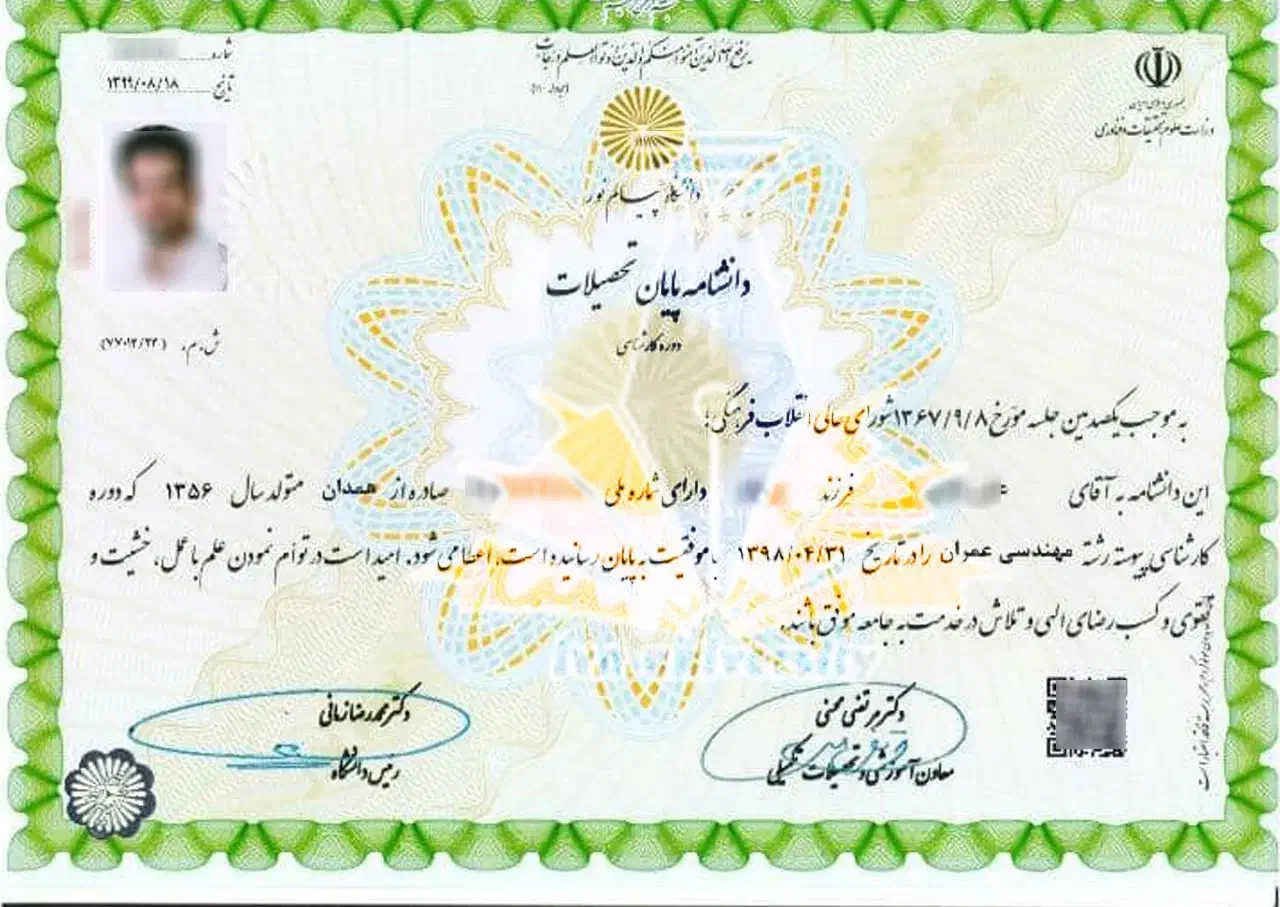 شماره
تاریخ ۱۳۹۹/۰۸/۱۸
جمهوری اسلامی ایران
وزارت علوم، تحقیقات و فناوری
یرفع الله الذین آمنوا منکم والذین اوتوا العلم درجات
دانشگاه پیام نور
دانشنامه پایان تحصیلات
دوره کارشناسی
ش.م.
به موجب یکصدمین جلسه مورخ ۱۳۶۷/۹/۸ شورای عالی انقلاب فرهنگی؛
این دانشنامه به آقای فرزند دارای شماره ملی صادره از همدان متولد سال ۱۳۵۶ که دوره
کارشناسی پیوسته رشته مهندسی عمران را در تاریخ ۱۳۹۸/۰۴/۳۱ با موفقیت به پایان رسانیده است، اعطا می شود. امید است در توأم نمودن علم با عمل، خشیت و
تقوی و کسب رضای الهی و تلاش در خدمت به جامعه موفق باشند.
دکتر مرتضی محسنی
معاون آموزشی و تحصیلات تکمیلی
دکتر محمدرضا زمانی
رئیس دانشگاه